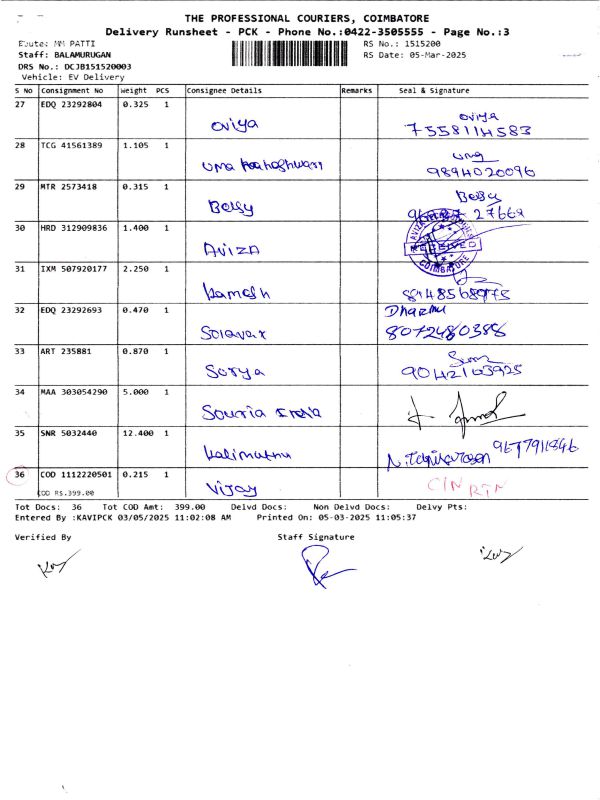 THE PROFESSIONAL COURIERS, COIMBATORE
Delivery Runsheet - PCK - Phone No.:0422-3505555 - Page No.:3
Route: MM PATTI
RS No.: 1515200
Staff: BALAMURUGAN
RS Date: 05-Mar-2025
DRS No.: DCJB151520003
Vehicle: EV Delivery
S No Consignment No Weight PCS Consignee Details Remarks Seal & Signature
27 EDQ 23292804 0.325 1
oviya
oviya
7558114583
28 TCG 41561389 1.105 1
uma
uma
9894020096
29 MTR 2573418 0.315 1
Bobby
27669
30 HRD 312909836 1.400 1
AVIZA
AVIZA
RECEIVED
COIMBATORE
31 IXM 507920177 2.250 1
Kamesh
32 EDQ 23292693 0.470 1
Dharmu
8072480386
33 ART 235881 0.870 1
Sorya
9042103925
34 MAA 303054290 5.000 1
Souria
35 SNR 5032440 12.400 1
Kalimuthu
9677911846
36 COD 1112220501 0.215 1
COD RS.399.00
Vijay
C/N RTN
Tot Docs: 36 Tot COD Amt: 399.00 Delvd Docs: Non Delvd Docs: Delvy Pts:
Entered By :KAVIPCK 03/05/2025 11:02:08 AM Printed On: 05-03-2025 11:05:37
Verified By Staff Signature